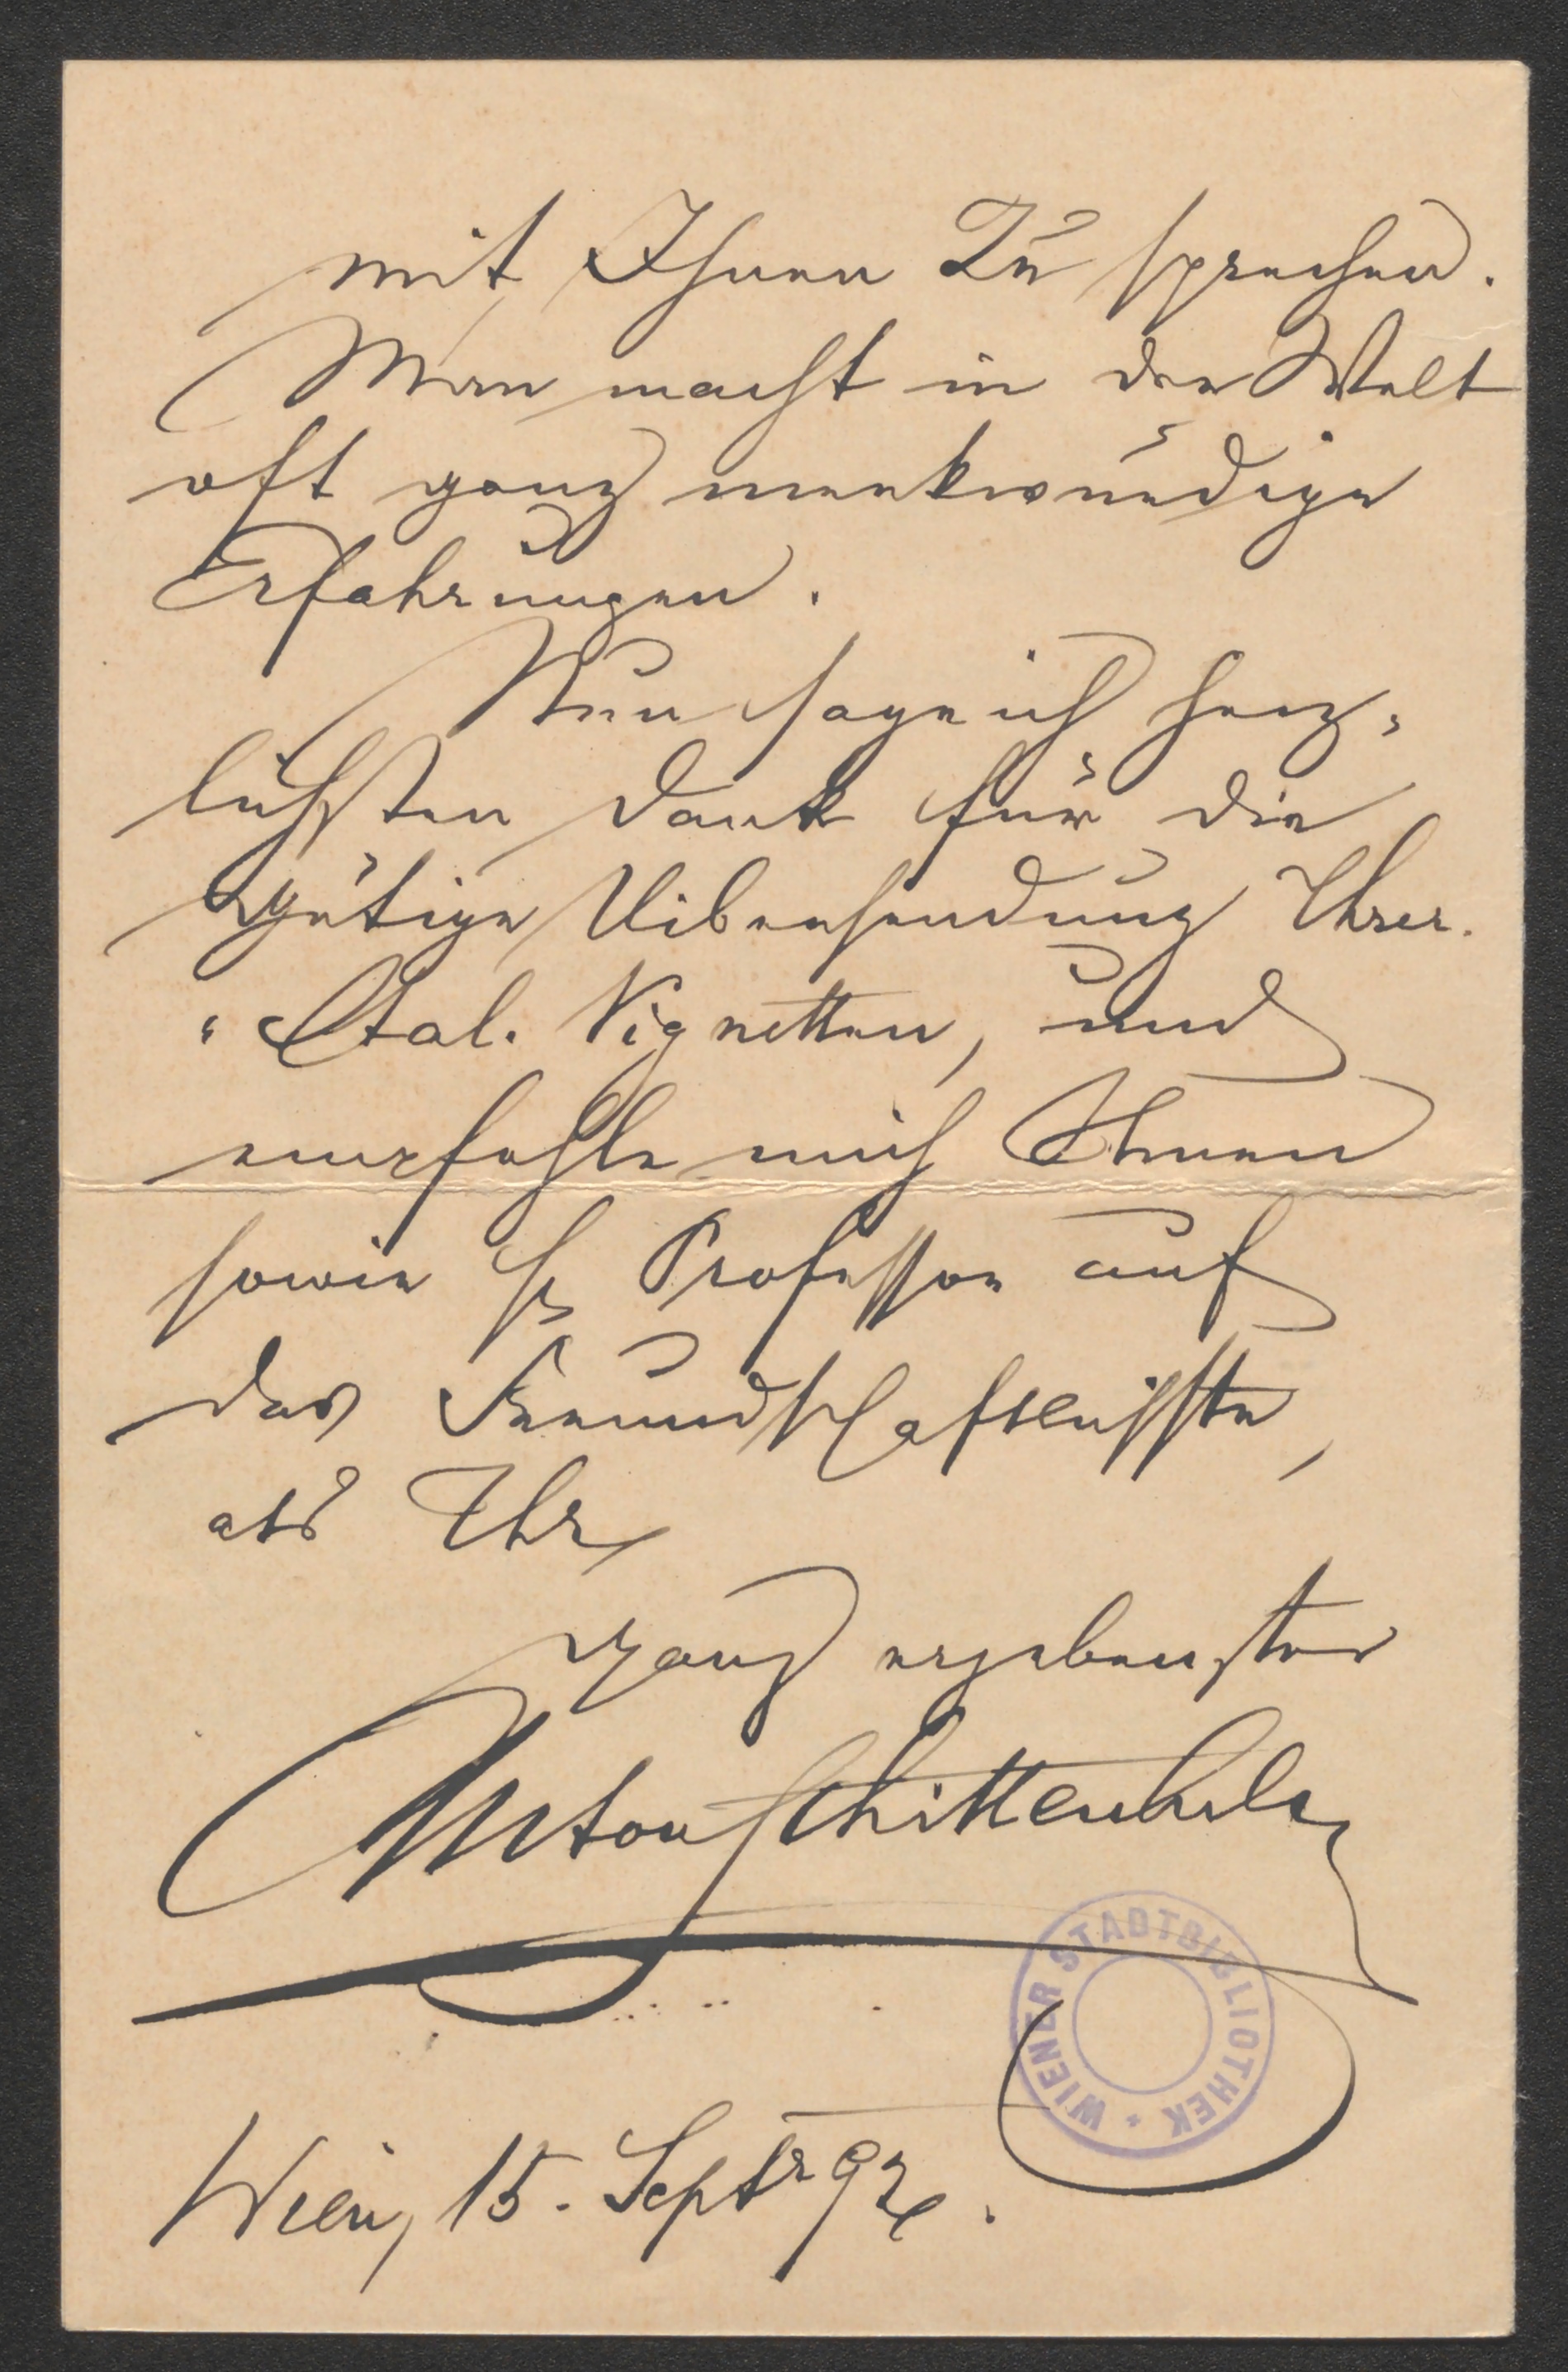 mit Ihnen zu sprechen.
Man macht in der Welt
oft ganz merkwürdige
Erfahrungen.
Nun sage ich herz-
lichsten Dank für die
gütige Uibersendung Ihrer
"Ital. Vignetten, und
empfehle mich Ihnen
sowie H Professor auf
das Freundschaftlichste,
als Ihr
ganz ergebenster
Anton Schittenhelm
WIENER STADTBIBLIOTHEK *
Wien, 15. Septr 92.